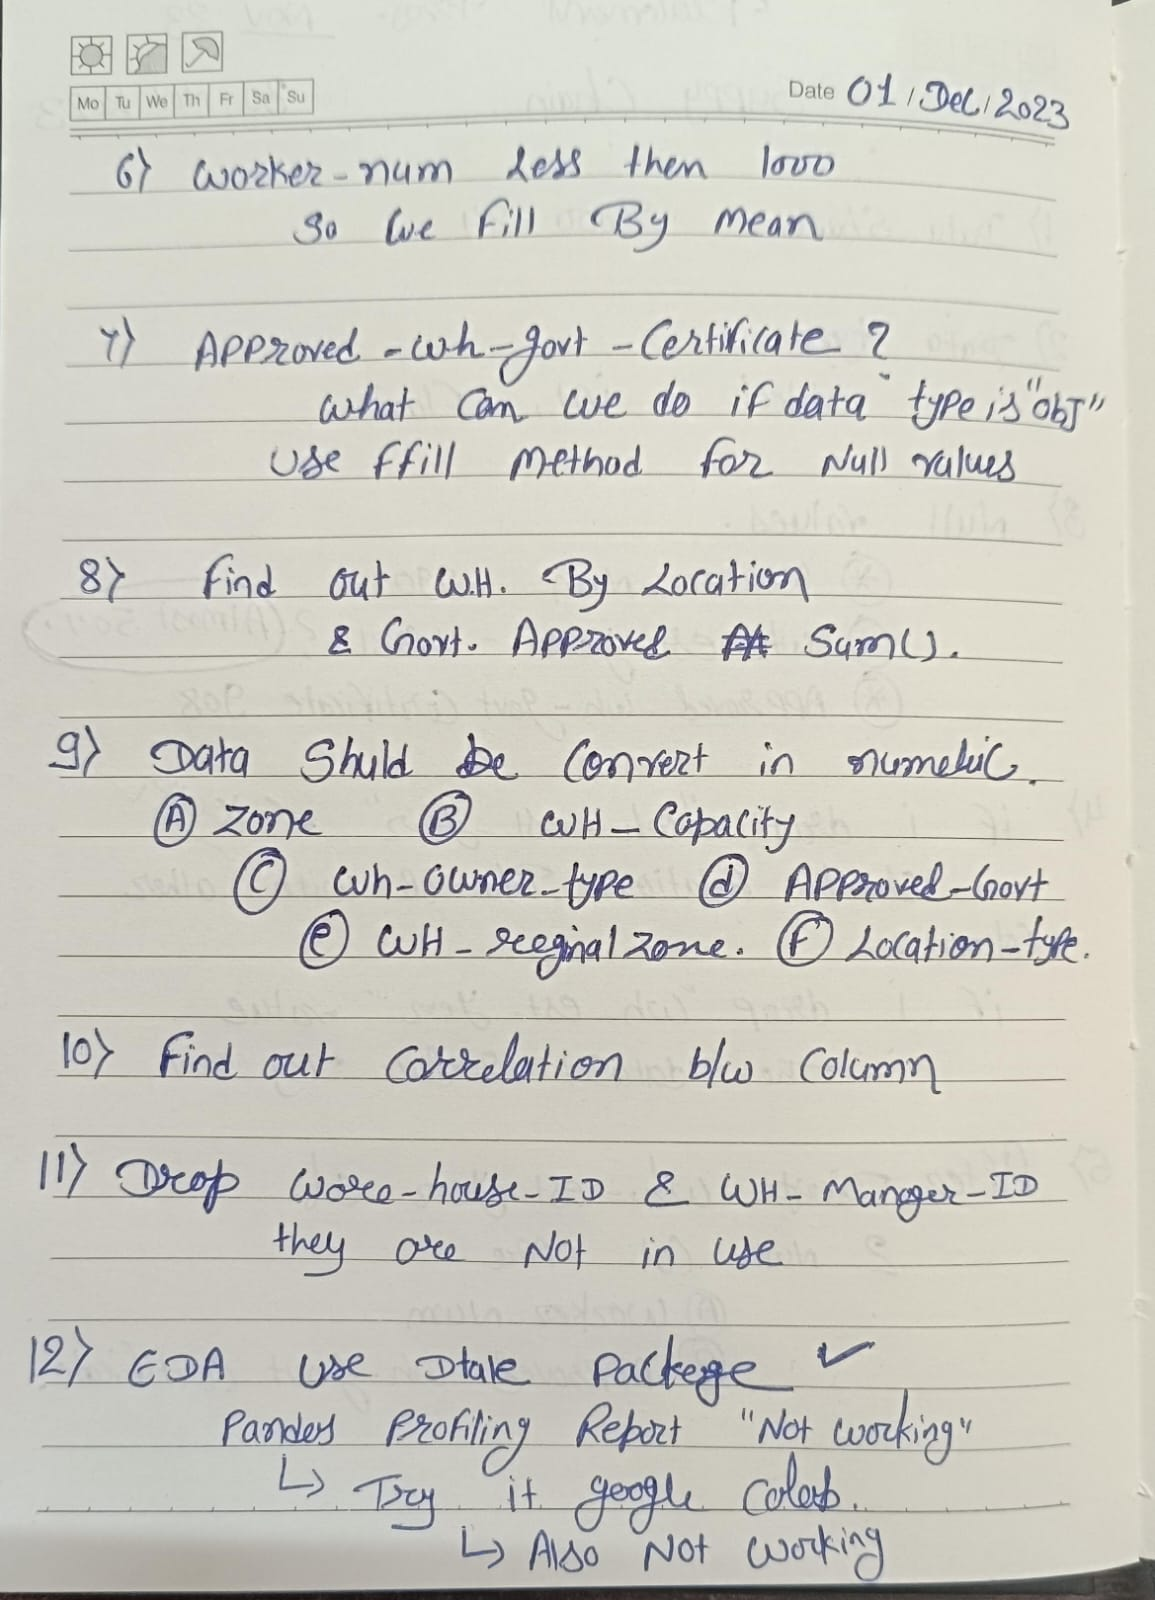 Mo Tu We Th Fr Sa Su
Date 01/Dec/2023
6) Worker-num Less then 1000
So We Fill By Mean
7) Approved-wh-govt-Certificate ?
What Can we do if data type is "obj"
Use ffill Method for Null values
8) Find out W.H. By Location
& Govt. Approved Sum().
9) Data Shuld be Convert in numeric.
(A) Zone (B) WH-Capacity
(C) Wh-Owner-type (d) Approved-Govt
(e) WH-reeginal Zone. (F) Location-type.
10) Find out Correlation b/w Column
11) Drop Ware-house-ID & WH-Manager-ID
they are Not in use
12) EDA Use Dtale Packege ✓
Pandas Profiling Report "Not working"
↳ Try it google Colab.
↳ Also Not Working